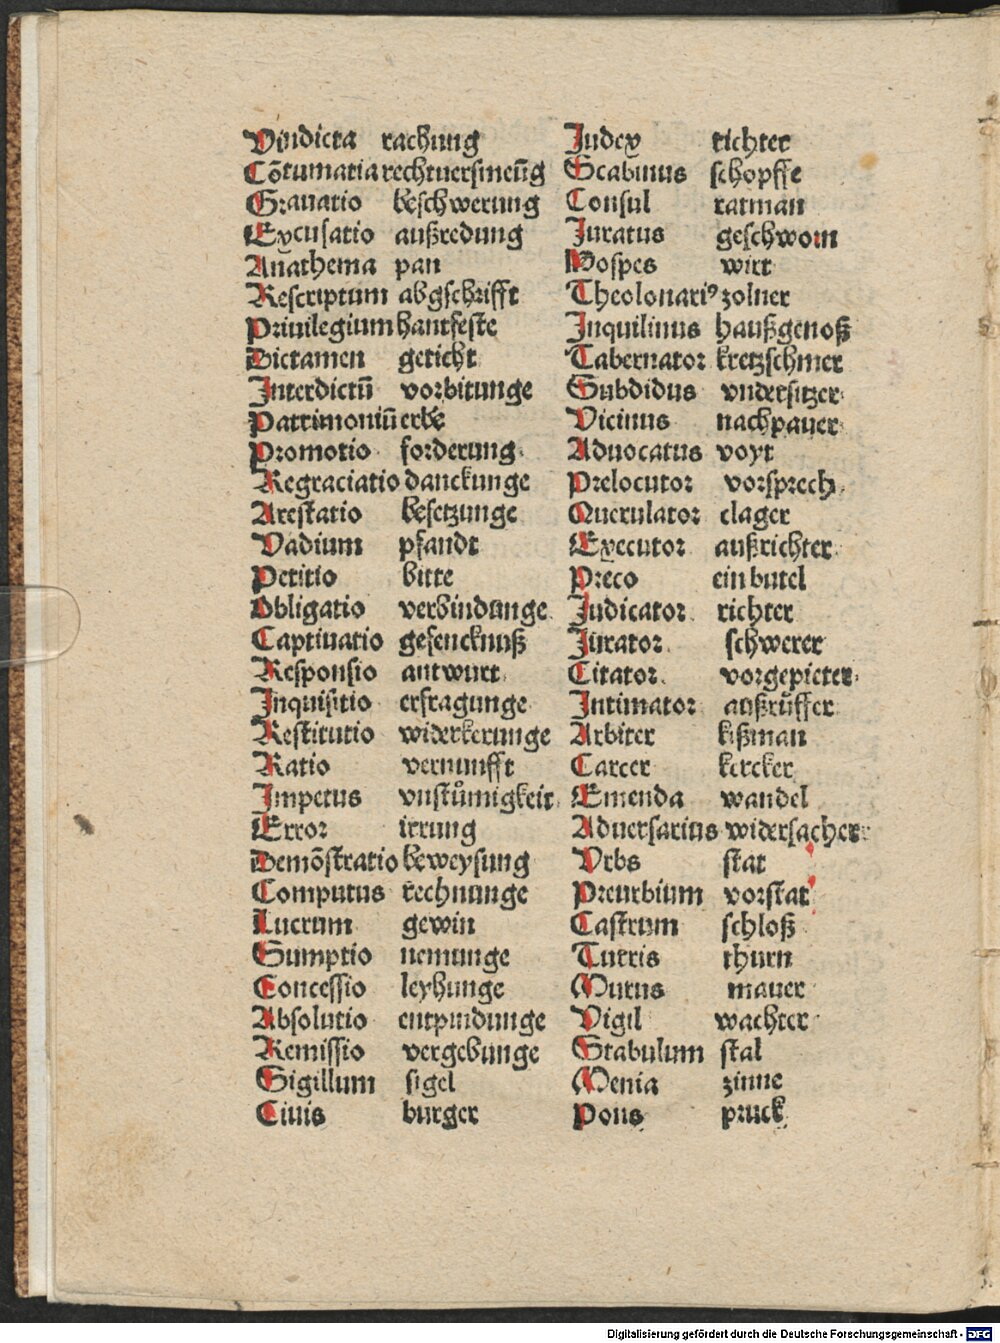 Vindicta rachung
Cōtumatia rechtuersmeūg
Grauatio beschwerung
Excusatio außredung
Anathema pan
Rescriptum abgschrifft
Priuilegium hantfeste
Dictamen geticht
Interdictū vorbitunge
Patrimoniū erbe
Promotio forderung
Regraciatio danckunge
Arestatio besetzunge
Vadium pfandt
Petitio bitte
Obligatio verbindunge
Captiuatio gefencknuß
Responsio antwurt
Inquisitio erfragunge
Restitutio widerkerunge
Ratio vernunfft
Impetus vnstůmigkeit
Error irrung
Demōstratio beweysung
Computus rechnunge
Lucrum gewin
Sumptio nemunge
Concessio leyhunge
Absolutio entpindunge
Remissio vergebunge
Sigillum sigel
Ciuis burger
Iudex richter
Scabinus schopffe
Consul ratman
Iuratus geschworn
Hospes wirt
Theolonariꝰ zolner
Inquilinus haußgenoß
Tabernator kretzschmer
Subdidus vndersitzer
Vicinus nachpauer
Aduocatus voyt
Prelocutor vorsprech
Querulator clager
Executor außrichter
Preco ein butel
Iudicator richter
Iurator schwerer
Citator vorgepieter
Intimator außrůffer
Arbiter kißman
Carcer kercker
Emenda wandel
Aduersarius widersacher
Vrbs stat
Preurbium vorstat
Castrum schloß
Turris thurn
Murus mauer
Vigil wachter
Stabulum stal
Menia zinne
Pons pruck
Digitalisierung gefördert durch die Deutsche Forschungsgemeinschaft - DFG